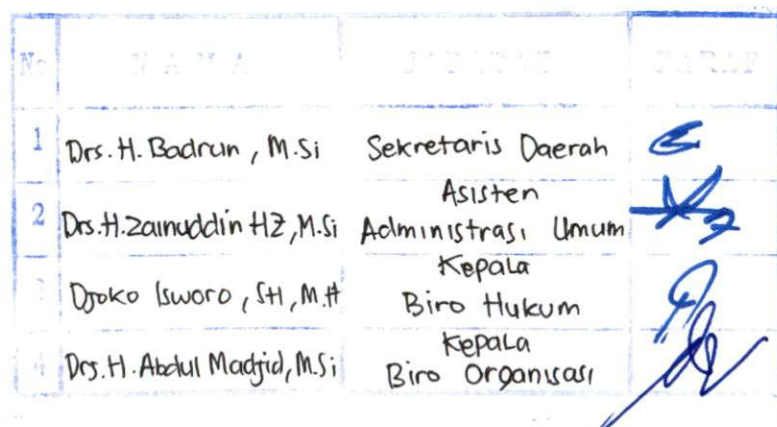 No N A M A J A B A T A N P A R A F
1 Drs. H. Badrun, M.Si Sekretaris Daerah
2 Drs.H.Zainuddin HZ,M.Si Asisten
Administrasi Umum
3 Djoko Isworo, SH, M.H Kepala
Biro Hukum
4 Drs.H.Abdul Madjid,M.Si Kepala
Biro Organisasi